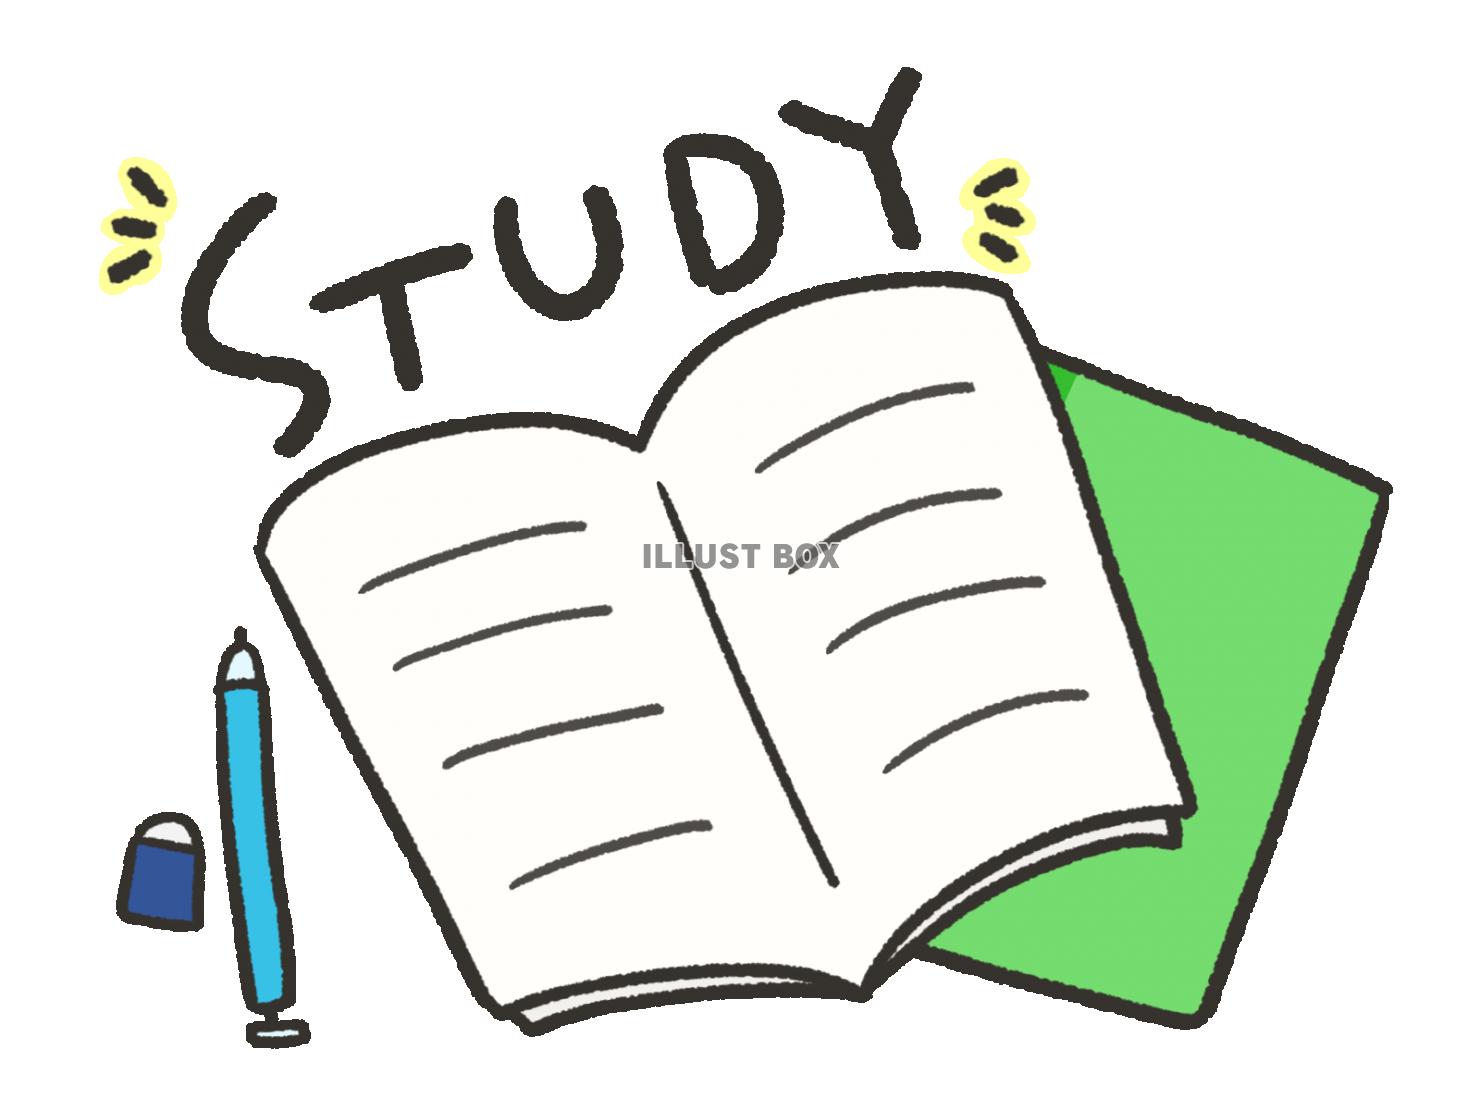 STUDY
ILLUST BOX